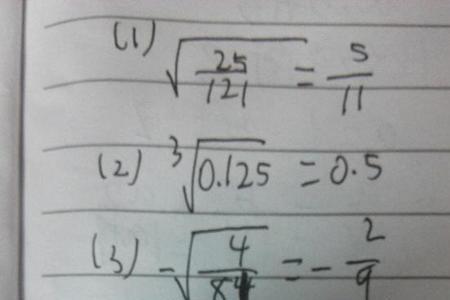 (1) √(25/121) = 5/11
(2) ³√0.125 = 0.5
(3) -√(4/81) = -2/9